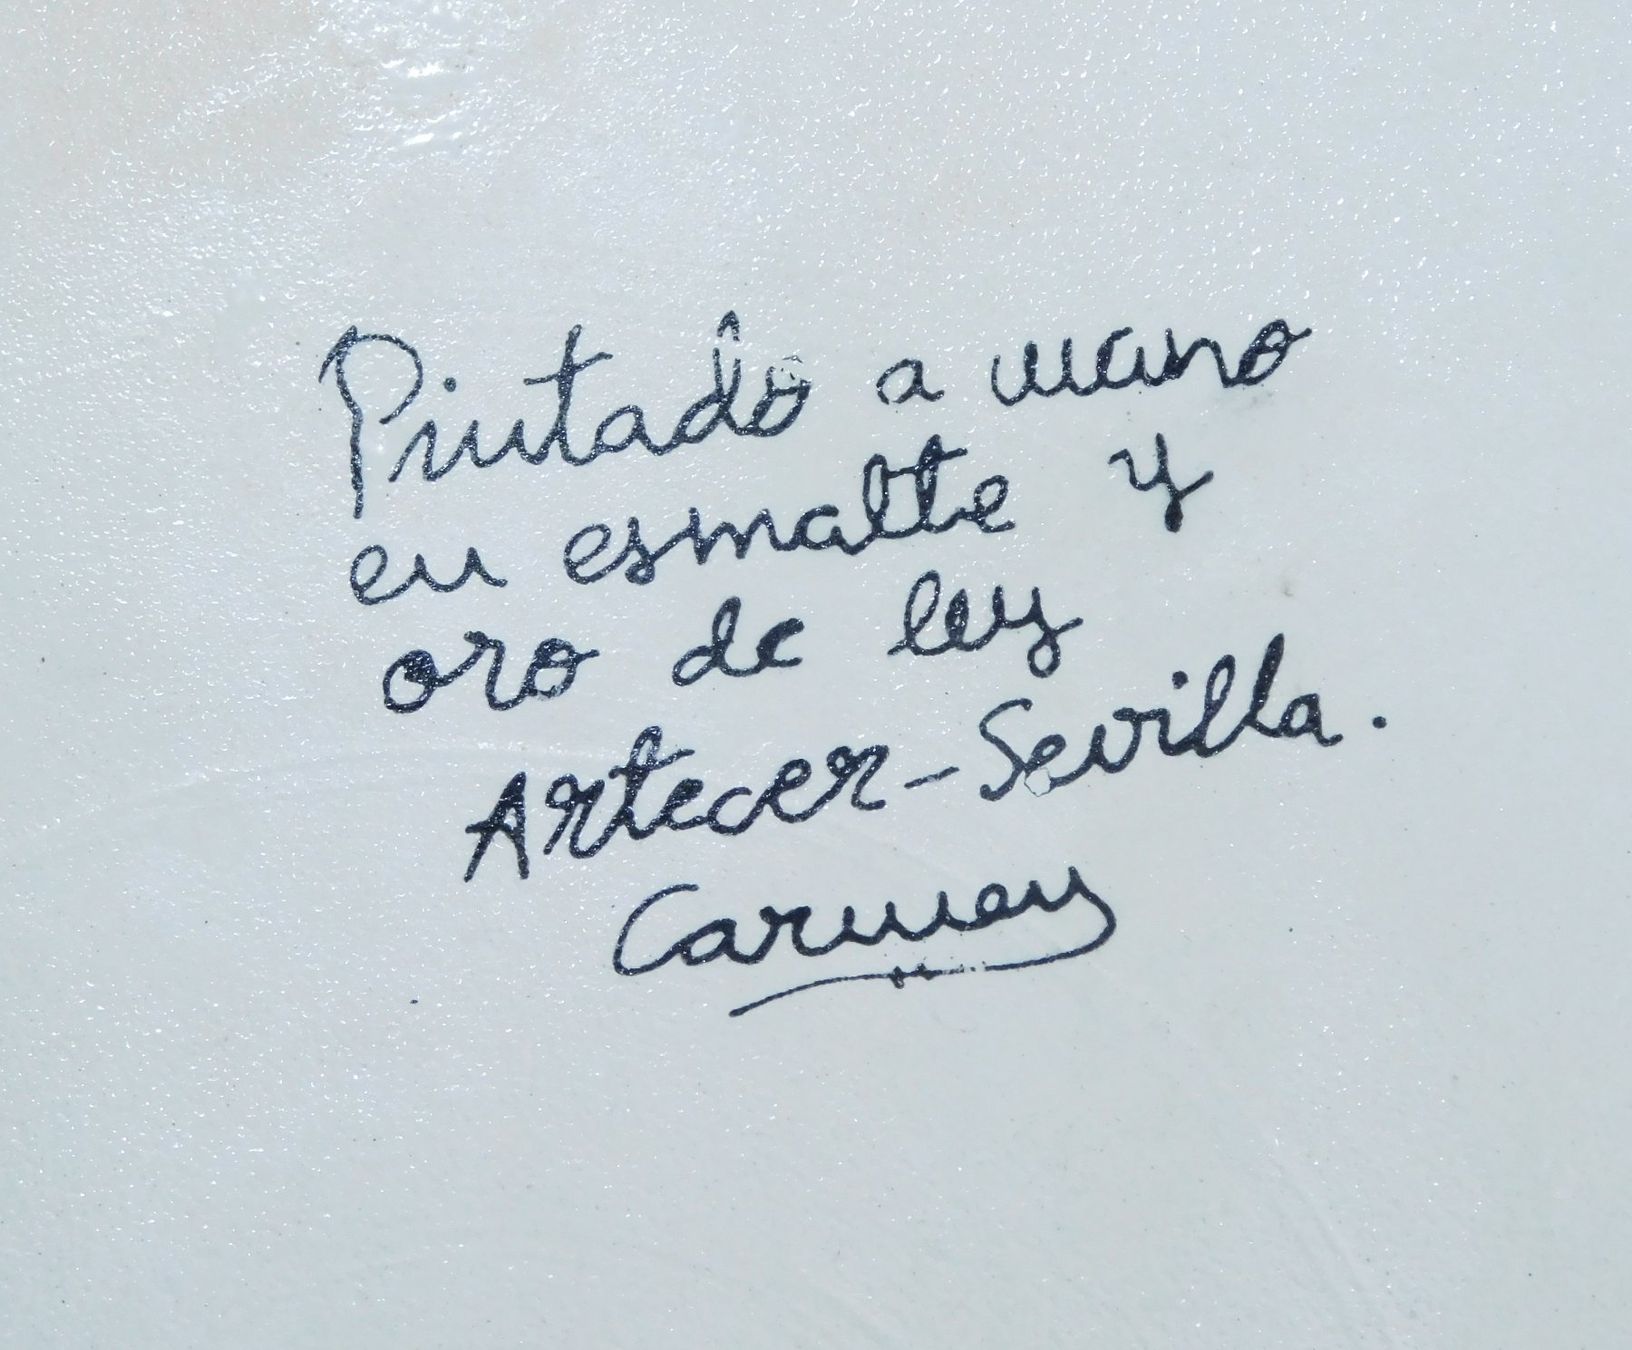 Pintado a mano
en esmalte y
oro de ley
Artecer-Sevilla.
Carmen